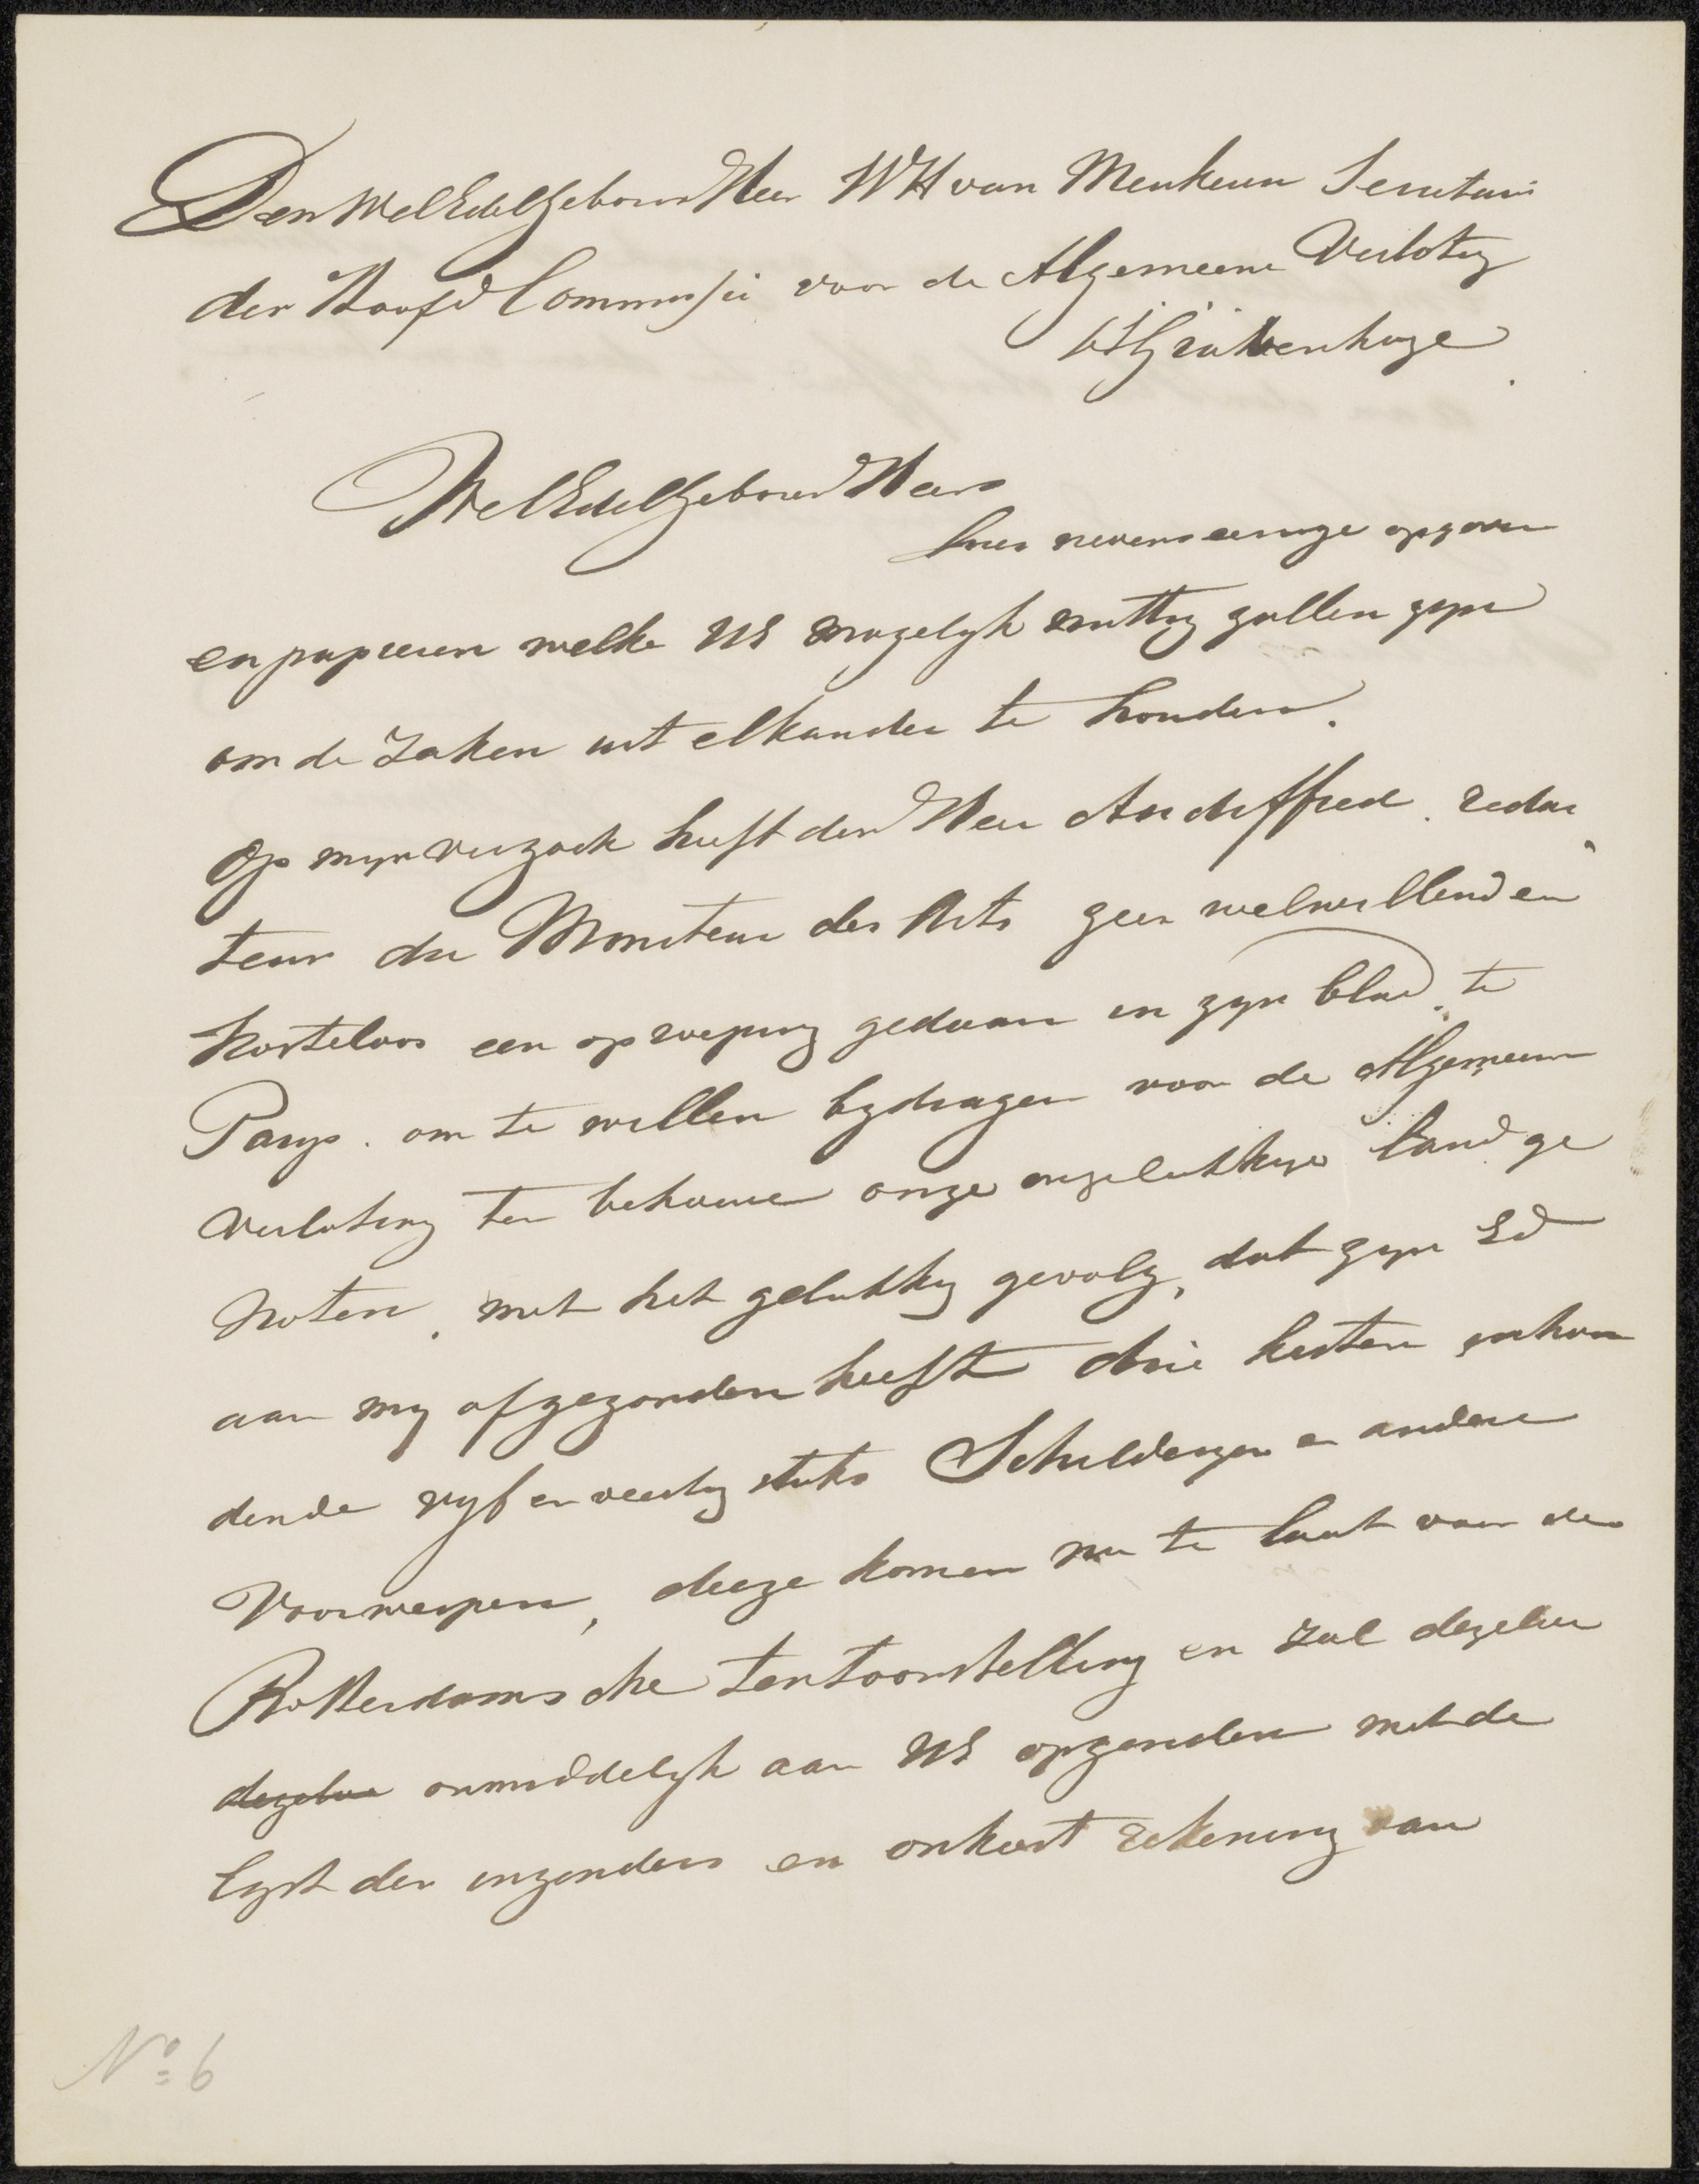 Den WelEdelGeboren Heer WH van Meukeren Secretaris
der Hoofd Commissie voor de Algemeene Verloting
S'Gravenhage
WelEdelGeboren Heer
hier nevens eenige opgaven
en papieren welke UE mogelyk nuttig zullen zyn
om de zaken uit elkander te houden.
Op myn verzoek heeft den Heer Audiffred. redac
teur du Moniteur des Arts zeer welwillend en
kosteloos een oproeping gedaan in zyn blad te
Parys. om te willen bydragen voor de Algemeene
Verloting ten behoeve onze ongelukkige landge
noten, met het gelukkig gevolg, dat zyn Ed
aan my afgezonden heeft drie kisten inhou
dende vyf en veertig stuks Schilderyen en andere
Voorwerpen, deeze komen nu te laat voor de
Rotterdamsche tentoonstelling en zal dezelve
dezelve onmiddelyk aan UE opzenden met de
lyst der inzenders en onkost rekening van
No 6